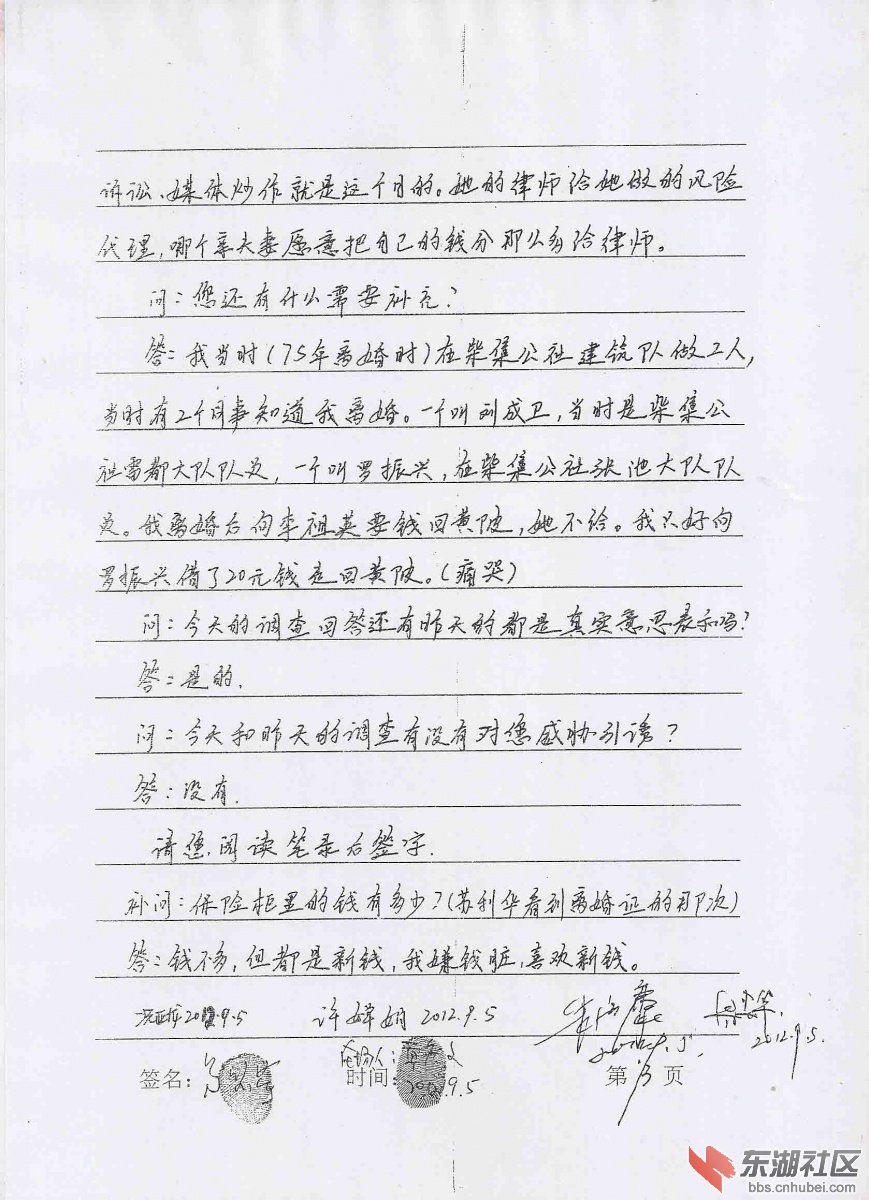 诉讼、媒体炒作就是这个目的。她的律师给她做的风险
代理,哪个亲夫妻愿意把自己的钱分那么多给律师。
问:您还有什么需要补充?
答:我当时(75年离婚时)在柴集公社建筑队做工人,
当时有2个同事知道我离婚。一个叫刘成卫,当时是柴集公
社雷都大队队员,一个叫罗振兴,在柴集公社张池大队队
员。我离婚后向李祖英要钱回黄陂,她不给。我只好向
罗振兴借了20元钱走回黄陂。(痛哭)
问:今天的调查回答还有昨天的都是真实意思表示吗?
答:是的.
问:今天和昨天的调查有没有对您威胁引诱?
答:没有.
请您阅读笔录后签字.
补问:保险柜里的钱有多少?(苏利华看到离婚证的那次)
答:钱不多,但都是新钱,我嫌钱脏,喜欢新钱。
9.5 许婵娟 2012.9.5
2012.9.5.
在场人:
签名: 时间: 9.5 第13页
东湖社区
bbs.cnhubei.com